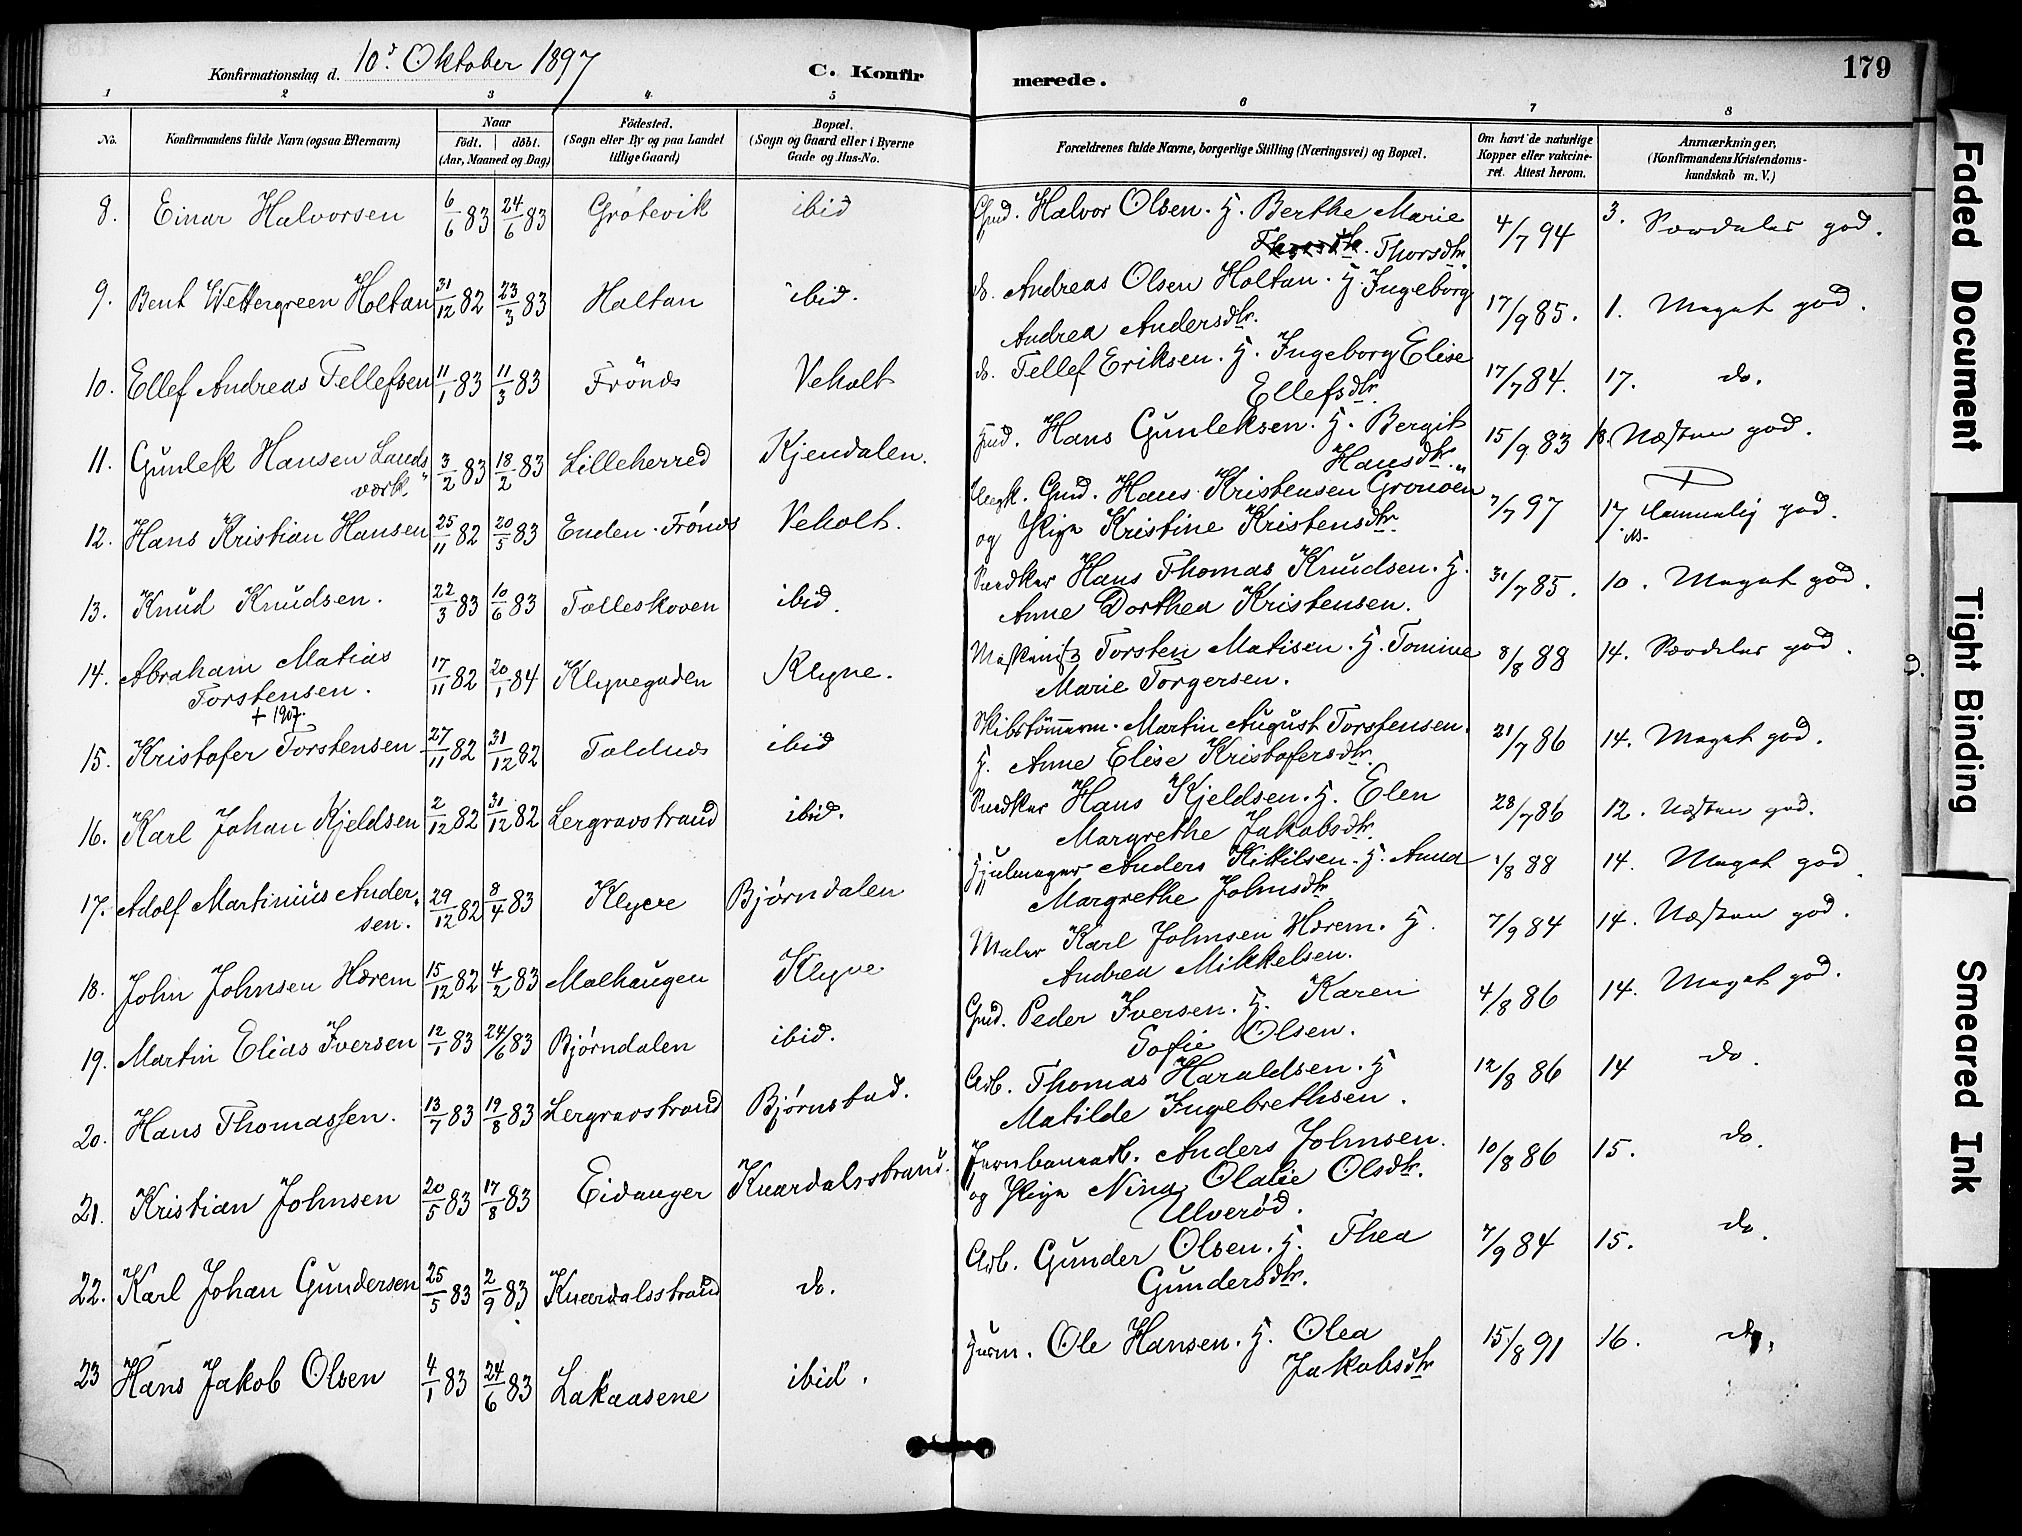 Konfirmationsdag d. 10d Oktober 1897
C. Konfir
merede.
179
1 2 3 4 5 6 7 8
No.
Konfirmandens fulde Navn (ogsaa Efternavn)
Naar
født. døbt.
(Aar, Maaned og Dag)
Fødested.
(Sogn eller By og paa Landet
tillige Gaard)
Bopæl.
(Sogn og Gaard eller i Byerne
Gade og Hus-No.
Forældrenes fulde Navne, borgerlige Stilling (Næringsvei) og Bopæl.
Om havt de naturlige
Kopper eller vakcine-
ret. Attest herom.
Anmærkninger,
(Konfirmandens Kristendoms-
kundskab m. V.)
8. Einar Halvorsen 6/6 83 24/6 83 Grötevik ibid Gmd. Halvor Olsen. H. Berthe Marie
Thorsdtr. 4/7 94 3. Særdeles god.
9. Bent Wettergreen Holtan 31/12 82 23/3 83 Holtan ibid. do. Andreas Olsen Holtan. H. Ingeborg
Andrea Andersdtr. 17/9 85. 1. Meget god.
10. Ellef Andreas Tellefsen 11/1 83 11/3 83 Frönæs Veholt do. Tellef Eriksen. H. Ingeborg Elise
Ellefsdtr. 17/7 84. 17. do.
11. Gunlek Hansen Lands-
værk 3/2 83 18/2 83 Lilleherred Kjendalen. Hmd. Hans Gunleksen. H. Bergit
Hansdtr. 15/9 83 Næsten god.
12. Hans Kristian Hansen 25/11 82 20/5 83 Enden. Frönæs Veholt. Ungk. Gmd. Hans Kristensen Gromöen
og Pige Kristine Kristensdtr. 7/7 97 17 Temmelig god.
13. Knud Knudsen. 22/3 83 10/6 83 Tolleskoven ibid. Snedker Hans Thomas Knudsen. H.
Anne Dorthea Kristensen. 31/7 85. 10. Meget god.
14. Abraham Matias
Torstensen.
+ 1907. 17/11 82 20/1 84 Klyvegaden Klyve. Maskinist Torsten Matisen. H. Tomine
Marie Torgersen. 8/8 88 14. Særdeles god.
15. Kristofer Torstensen 27/11 82 31/12 82 Toldnes ibid Skibstömmerm. Martin August Torstensen.
H. Anne Elise Kristofersdtr. 21/7 86 14. Meget god.
16. Karl Johan Kjeldsen 2/12 82 31/12 82 Lergravstrand ibid. Snedker Hans Kjeldsen. H. Elen
Margrethe Jakobsdtr. 28/7 86 12. Næsten god.
17. Adolf Martinius Ander-
sen. 29/12 82 8/4 83 Klyve Bjørndalen Hjulmager Anders Kittilsen. H. Anna
Margrethe Johnsdtr. 1/8 88 14. Meget god.
18. John Johnsen Hærem 15/12 82 4/2 83 Molhaugen Klyve Maler Karl Johnsen Hærem. H.
Andrea Mikkelsen. 7/9 84 14. Næsten god.
19. Martin Elias Iversen 12/1 83 24/6 83 Bjørndalen ibid. Gmd. Peder Iversen. H. Karen
Sofie Olsen. 4/8 86 14. Meget god.
20. Hans Thomassen. 13/7 83 19/8 83 Lergravstrand Bjørnstad. Arb. Thomas Haraldsen. H
Matilde Ingebrethsen. 12/8 86 14 do.
21. Kristian Johnsen 20/5 83 17/8 83 Eidanger Knardalsstrand. Jernbanearb. Anders Johnsen.
og Pige Nina Olalie Olsdtr.
Ulverød. 10/8 86 15. do.
22. Karl Johan Gundersen 25/5 83 2/9 83 Knardalsstrand do. Arb. Gunder Olsen. H. Thea
Gundersdtr. 7/9 84 15. do.
23 Hans Jakob Olsen 4/1 83 24/6 83 Lakaasene ibid. Hurm. Ole Hansen. H. Olea
Jakobsdtr 15/8 91 16. do.
Faded Document
Tight Binding
Smeared Ink